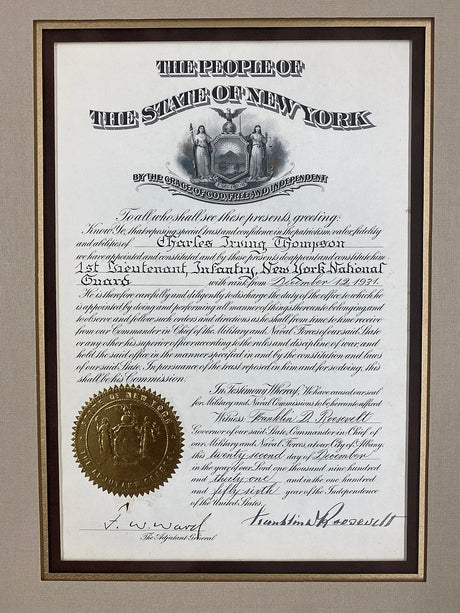 THE PEOPLE OF
THE STATE OF NEW YORK
BY THE GRACE OF GOD, FREE AND INDEPENDENT
To all who shall see these presents, greeting:
Know Ye, that reposing special trust and confidence in the patriotism, valor, fidelity
and abilities of Charles Irving Thompson
we have appointed and constituted and by these presents do appoint and constitute him
1st Lieutenant, Infantry, New York National
Guard with rank from December 12, 1931.
He is therefore carefully and diligently to discharge the duty of the office to which he
is appointed by doing and performing all manner of things thereunto belonging, and
to observe and follow such orders and directions as he shall from time to time receive
from our Commander in Chief of the Military and Naval Forces of our said State
or any other his superior officer according to the rules and discipline of war, and
hold the said office in the manner specified in and by the constitution and laws
of our said State. In pursuance of the trust reposed in him and for so doing, this
shall be his Commission:
In Testimony Whereof, We have caused our seal
for Military and Naval Commissions to be hereunto affixed
Witness Franklin D. Roosevelt
Governor of our said State, Commander in Chief of
our Military and Naval Forces, at our City of Albany,
this twenty second day of December
in the year of our Lord one thousand nine hundred
and thirty one and in the one hundred
and fifty sixth year of the Independence
of the United States.
F. W. Ward
The Adjutant General
Franklin D Roosevelt